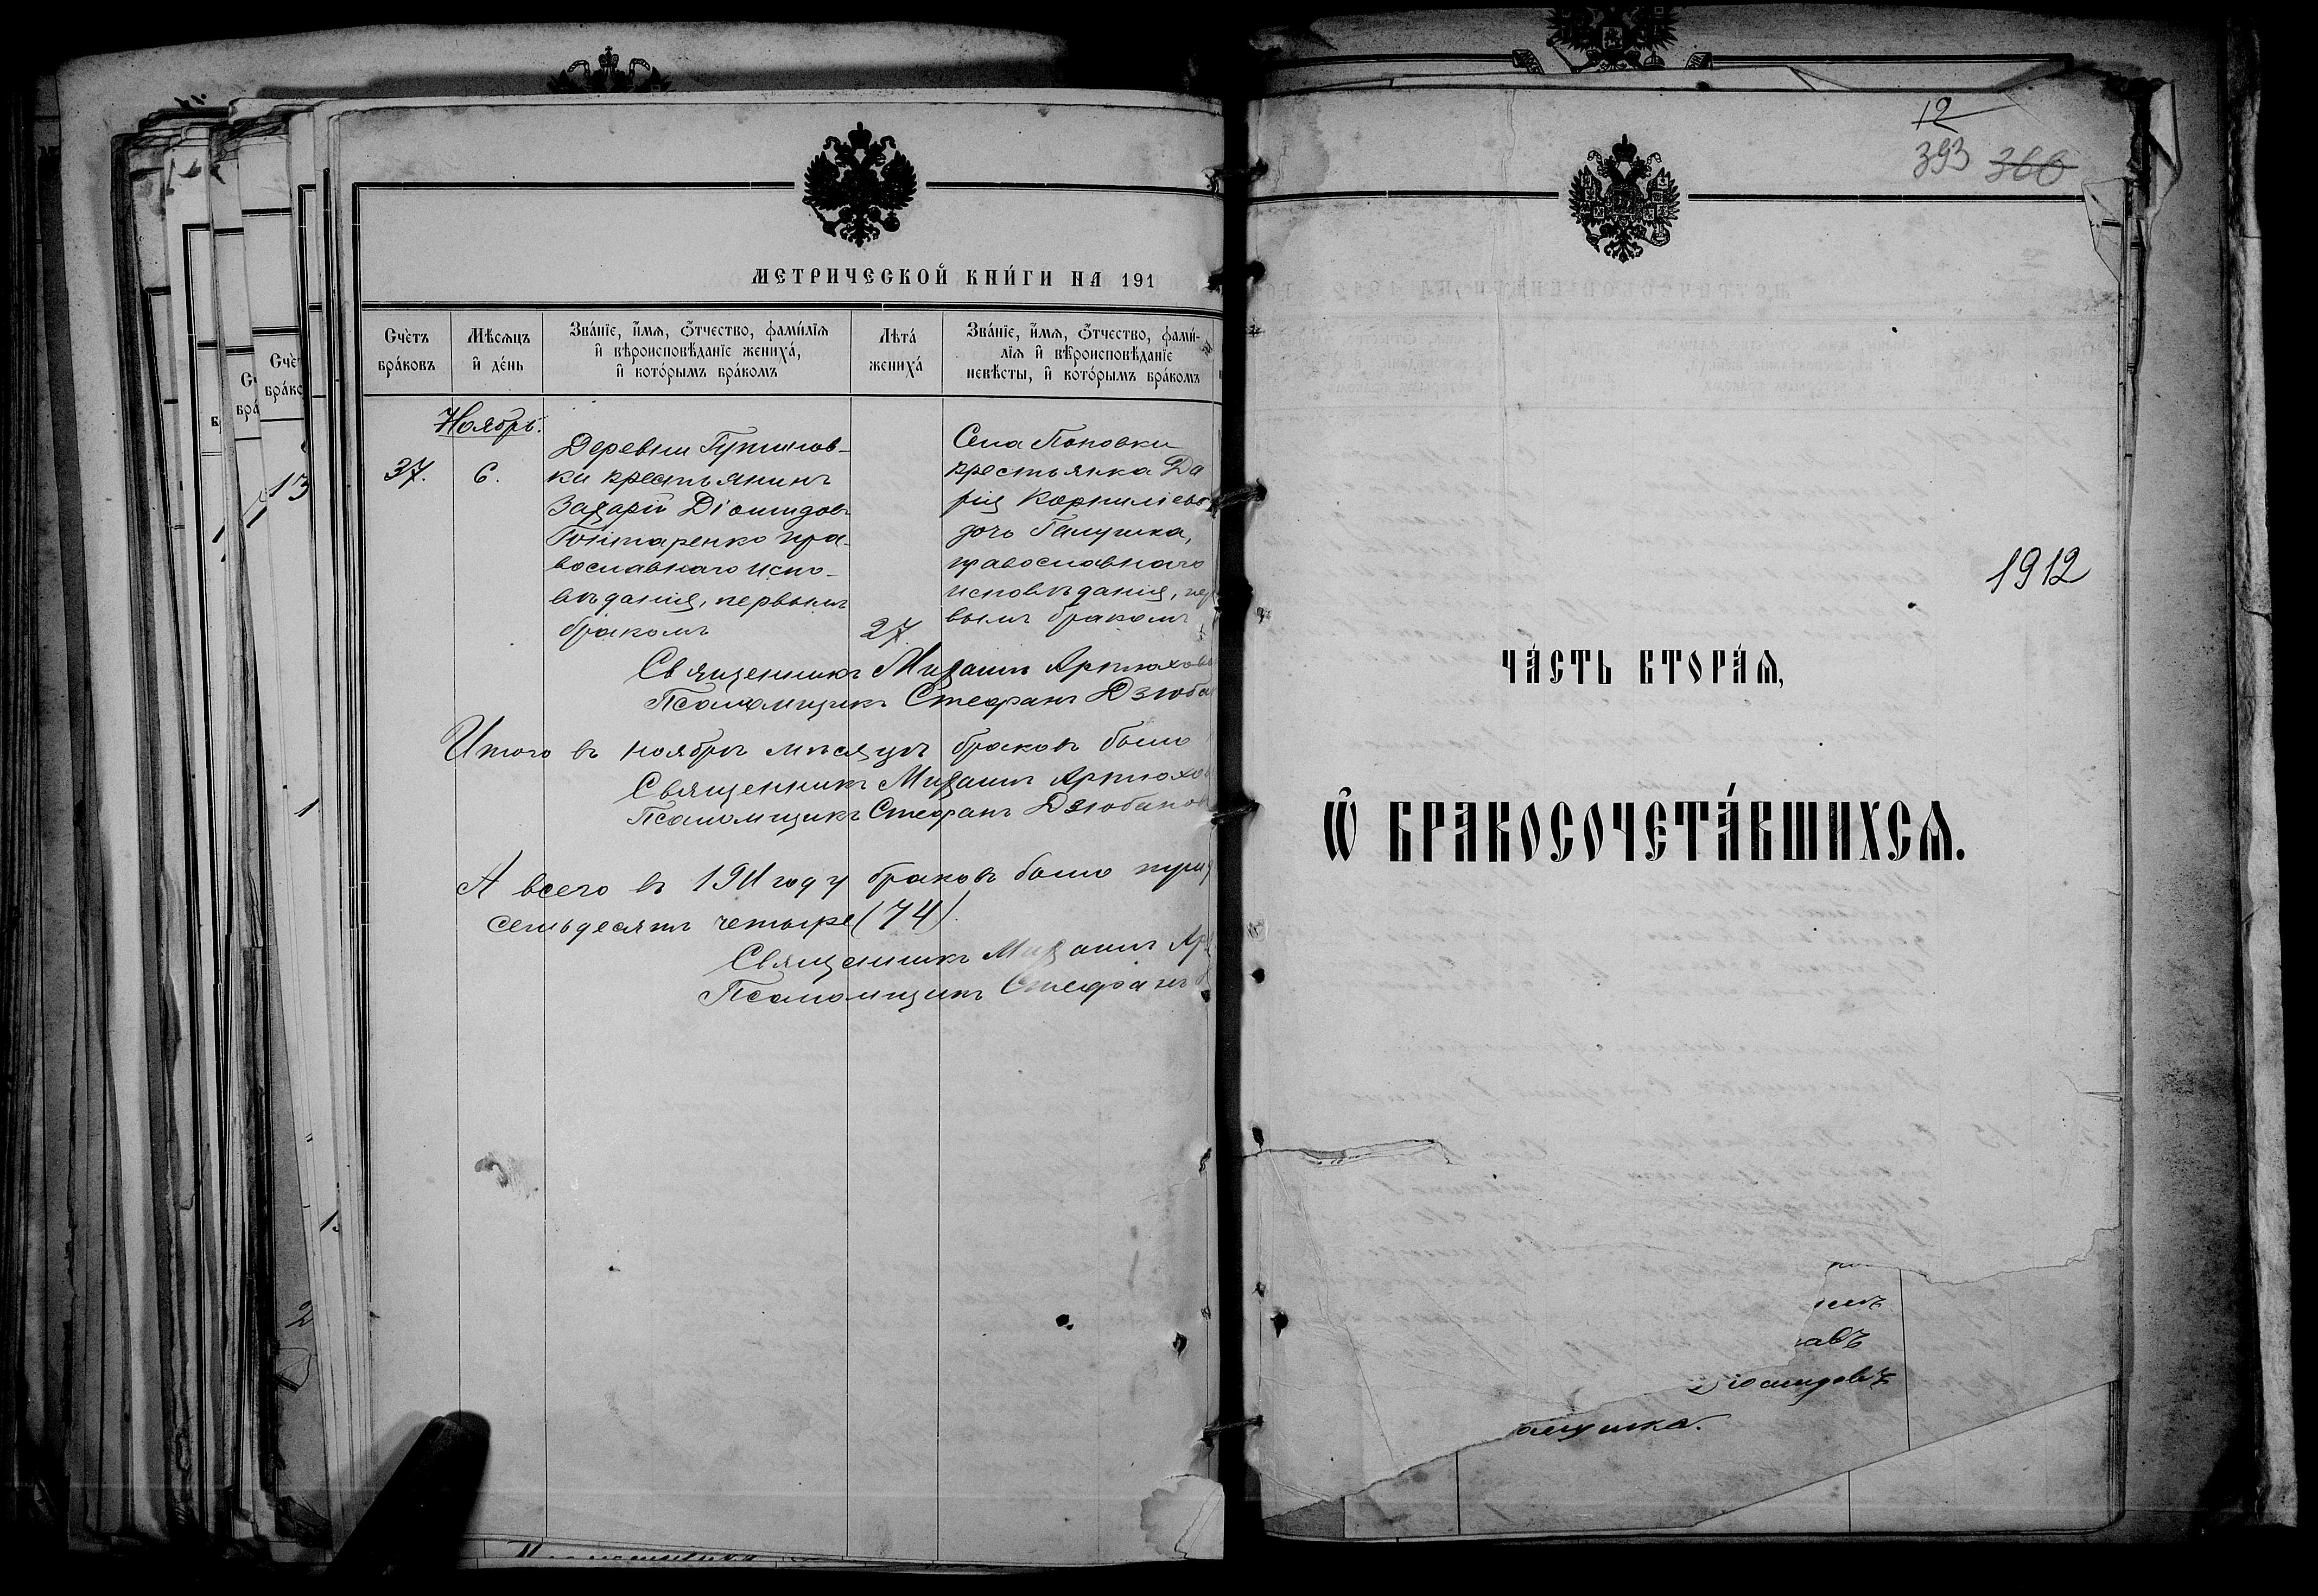 МЕТРИЧЕСКОЙ КНИ́ГИ НА 191
Счѐтъ бра́ковъ
Мѣсяцъ и҆ де́нь
Зва́нїе, и҆́мѧ, ѻ҆́тчество, фами́лїѧ и҆ вѣроисповѣ́данїе жениха́, и҆ кото́рымъ бра́комъ
Лѣта́ жениха́
Зва́нїе, и҆́мѧ, ѻ҆́тчество, фами́лїѧ и҆ вѣроисповѣ́данїе невѣ́сты, и҆ кото́рымъ бра́комъ
Ноябрь.
37.
6.
Деревни
ки крестьянинъ
Захарій Діомидовъ
Гонтаренко пра-
вославнаго испо-
вѣданія, первымъ
бракомъ
27.
Села Поповки
крестьянка Да
рія Корниліева
дочь Галушка,
православнаго
исповѣданія, пер
вымъ бракомъ
Священникъ Михаилъ Артюхов
Псаломщикъ Стефанъ Дзюба
Итого въ ноябрѣ мѣсяцѣ браковъ было
Священникъ Михаилъ Артюхов
Псаломщикъ Стефанъ Дзюбанов
А всего въ 1911 году браковъ было
семьдесятъ четыре (74).
Священникъ Михаилъ Ар
Псаломщикъ Стефанъ
12
393 366
1912
ЧА́СТЬ ВТОРА́Ѧ,
Ѽ БРАКОСОЧЕТА́ВШИХСѦ.
авъ
Діомидовъ
алушка.
Счѐ
бра́ко
13
1
1.
2